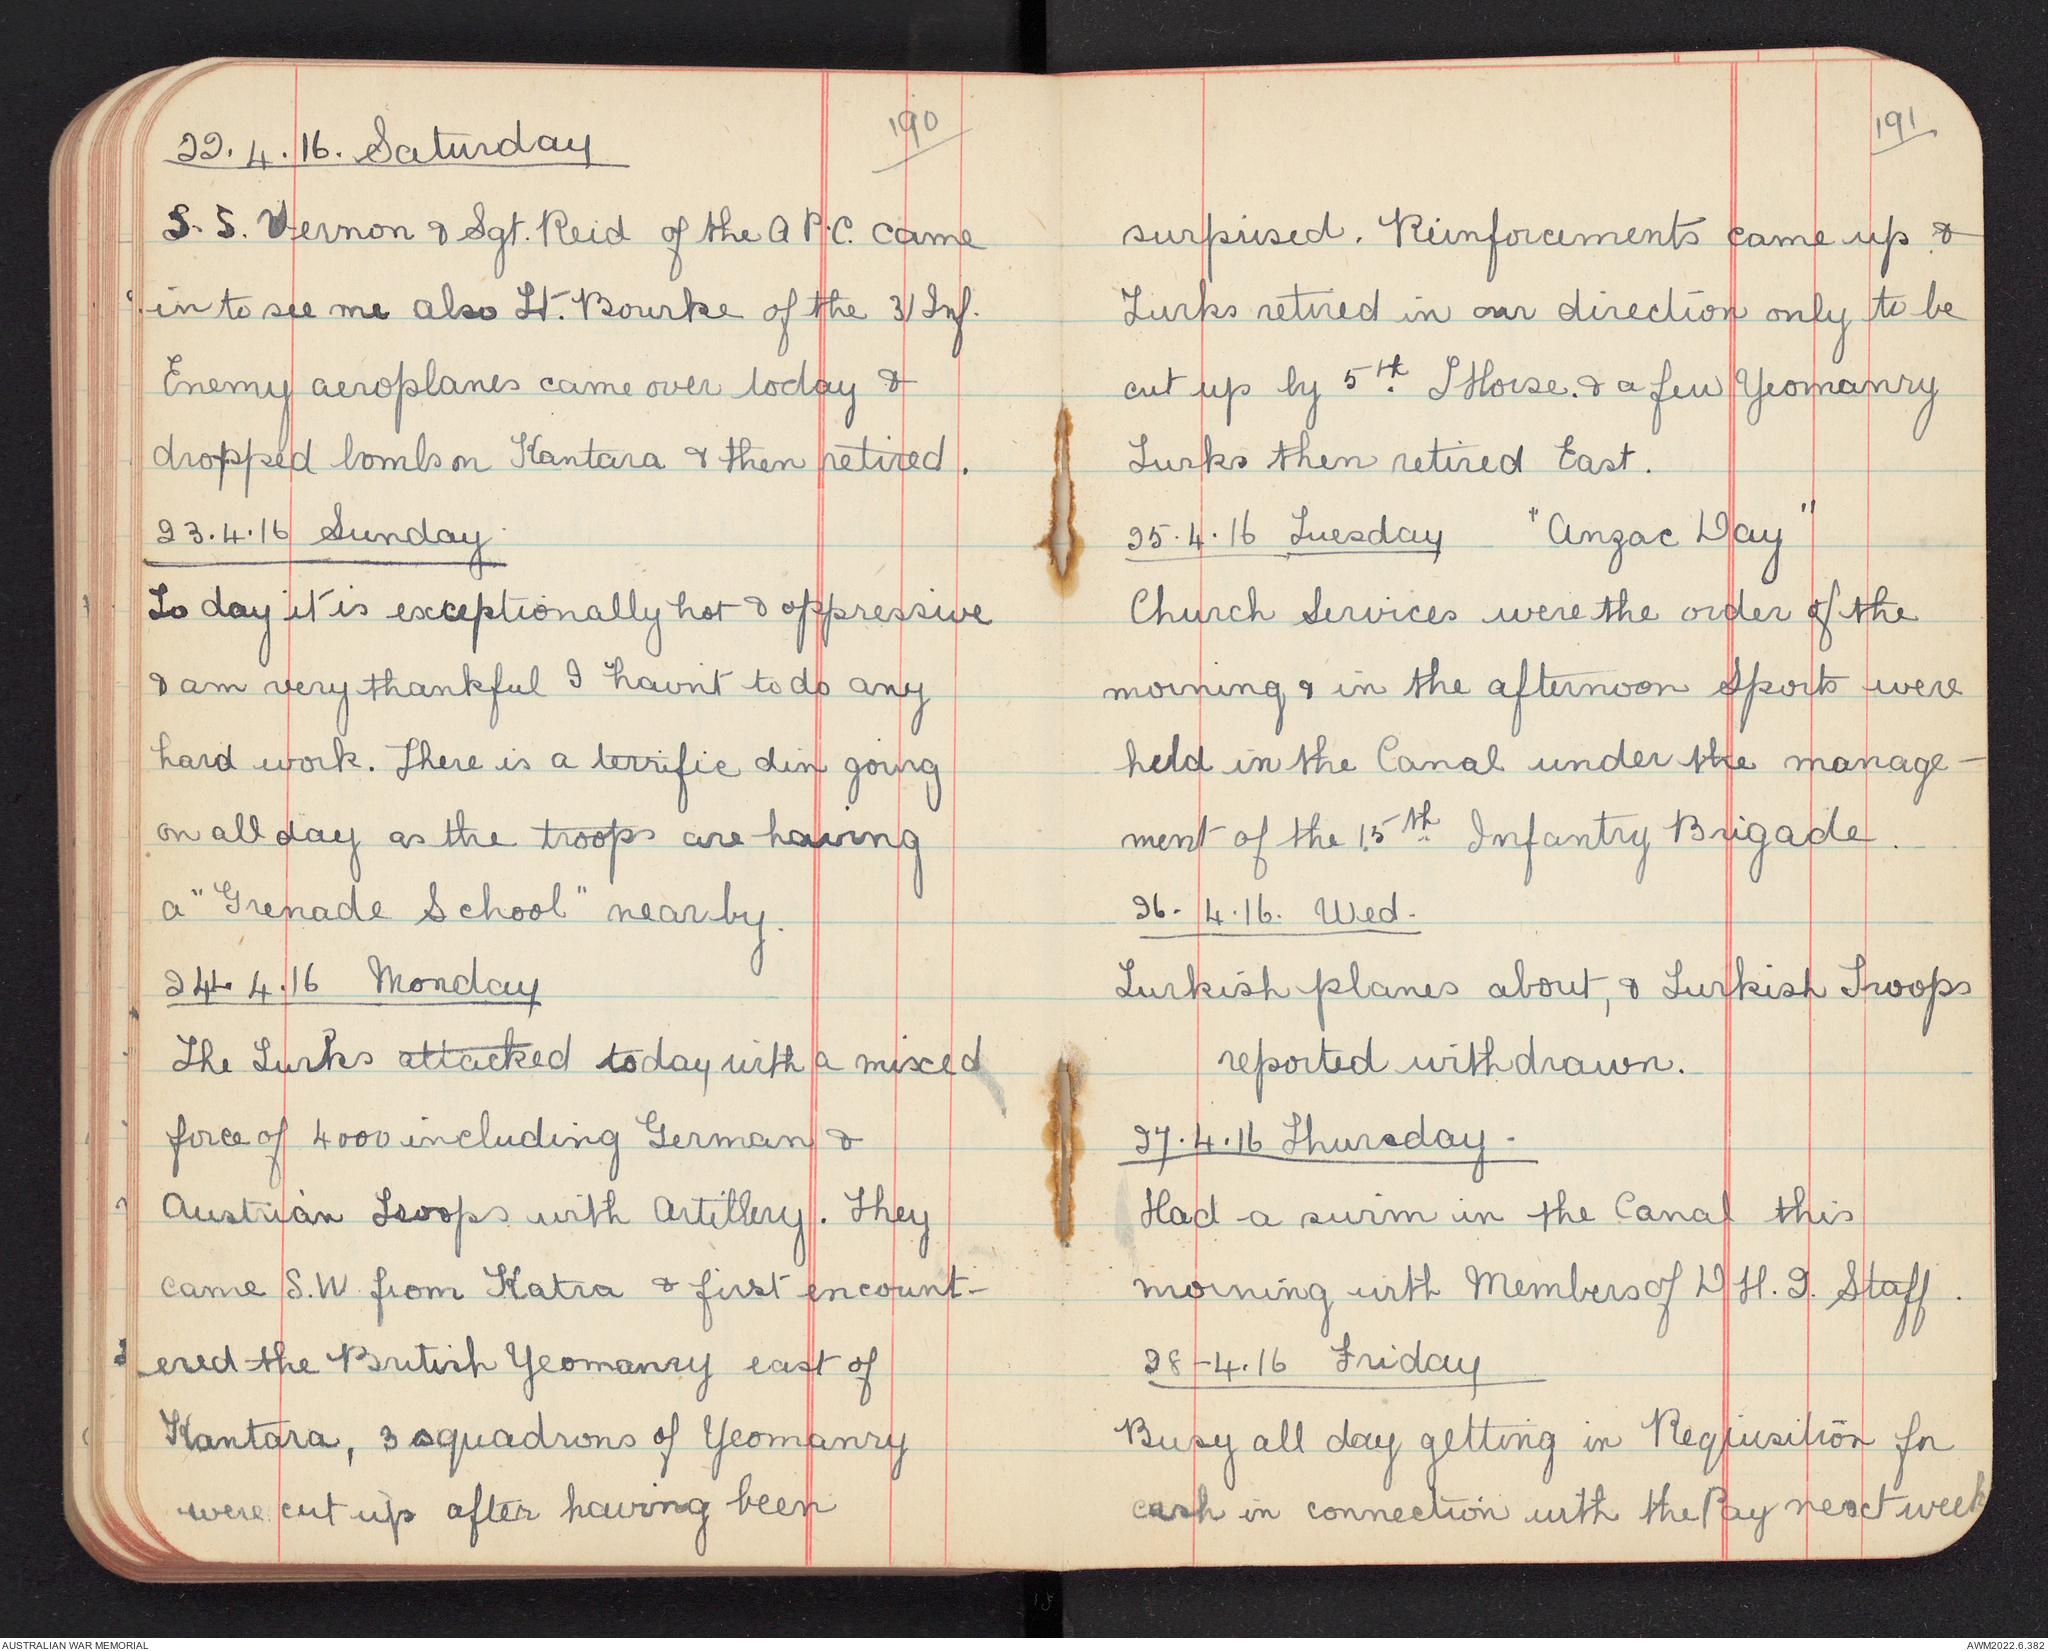 190
22.4.16. Saturday
S.S. Vernon & Sgt. Reid of the A P.C. came
in to see me also Lt. Bourke of the 31 Inf.
Enemy aeroplanes came over today &
dropped bombs on Kantara & then retired.
23.4.16 Sunday
To day it is exceptionally hot & oppressive
& am very thankful I havnt to do any
hard work. There is a terrific din going
on all day as the troops are having
a "Grenade School" near by.
24.4.16 Monday
The Turks attacked today with a mixed
force of 4000 including German &
Austrian Troops with Artillery. They
came S.W. from Katra & first encount-
ered the British Yeomanry east of
Kantara, 3 squadrons of Yeomanry
were cut up after having been
191
surprised. Reinforcements came up &
Turks retired in our direction only to be
cut up by 5th. L Horse. & a few Yeomanry
Turks then retired East.
25.4.16 Tuesday "Anzac Day"
Church Services were the order of the
morning & in the afternoon Sports were
held in the Canal under the manage-
ment of the 15th. Infantry Brigade.
26.4.16. Wed.
Turkish planes about, & Turkish Troops
reported withdrawn.
27.4.16 Thursday -
Had a swim in the Canal this
morning with Members of D H. Q. Staff.
28-4.16 Friday
Busy all day getting in Requisition for
cash in connection with the Pay next week
AUSTRALIAN WAR MEMORIAL
AWM2022.6.382